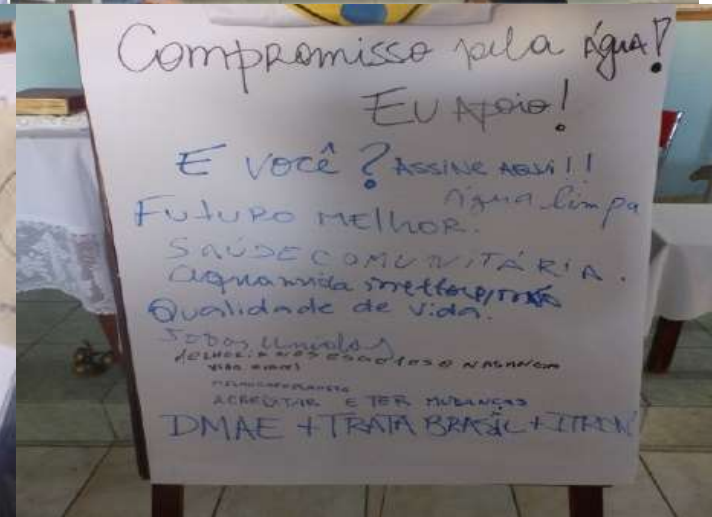 Compromisso pela água!
Eu Apoio!
E você? ASSINE AQUI!!
Água limpa
FUTURO MELHOR.
SAÚDE COMUNITÁRIA.
Qualidade de Vida.
Todos unidos
ACREDITAR E TER MUDANÇAS
DMAE + TRATA BRASIL + ITRON